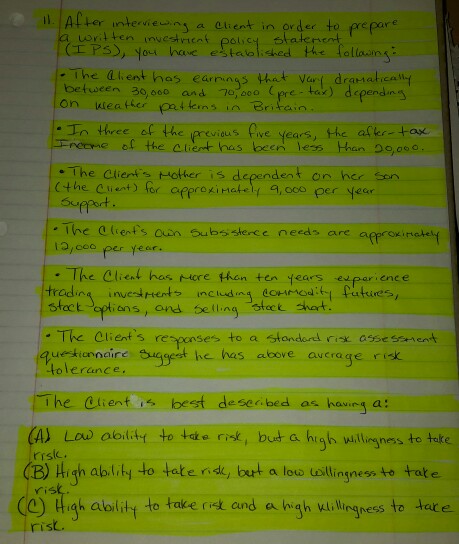 11. After interviewing a client in order to prepare
a written investment policy statement
(IPS), you have established the following:
• The Client has earnings that vary dramatically
between 30,000 and 70,000 (pre-tax) depending
on weather patterns in Britain.
• In three of the previous five years, the after-tax
Income of the client has been less than 20,000.
• The Client's Mother is dependent on her son
(the Client) for approximately 9,000 per year
support.
• The Client's own subsistence needs are approximately
12,000 per year.
• The Client has more than ten years experience
trading investments including commodity futures,
stock options, and selling stock short.
• The Client's responses to a standard risk assessment
questionnaire suggest he has above average risk
tolerance.
The Client is best described as having a:
(A) Low ability to take risk, but a high willingness to take
risk.
(B) High ability to take risk, but a low willingness to take
risk.
(C) High ability to take risk and a high willingness to take
risk.